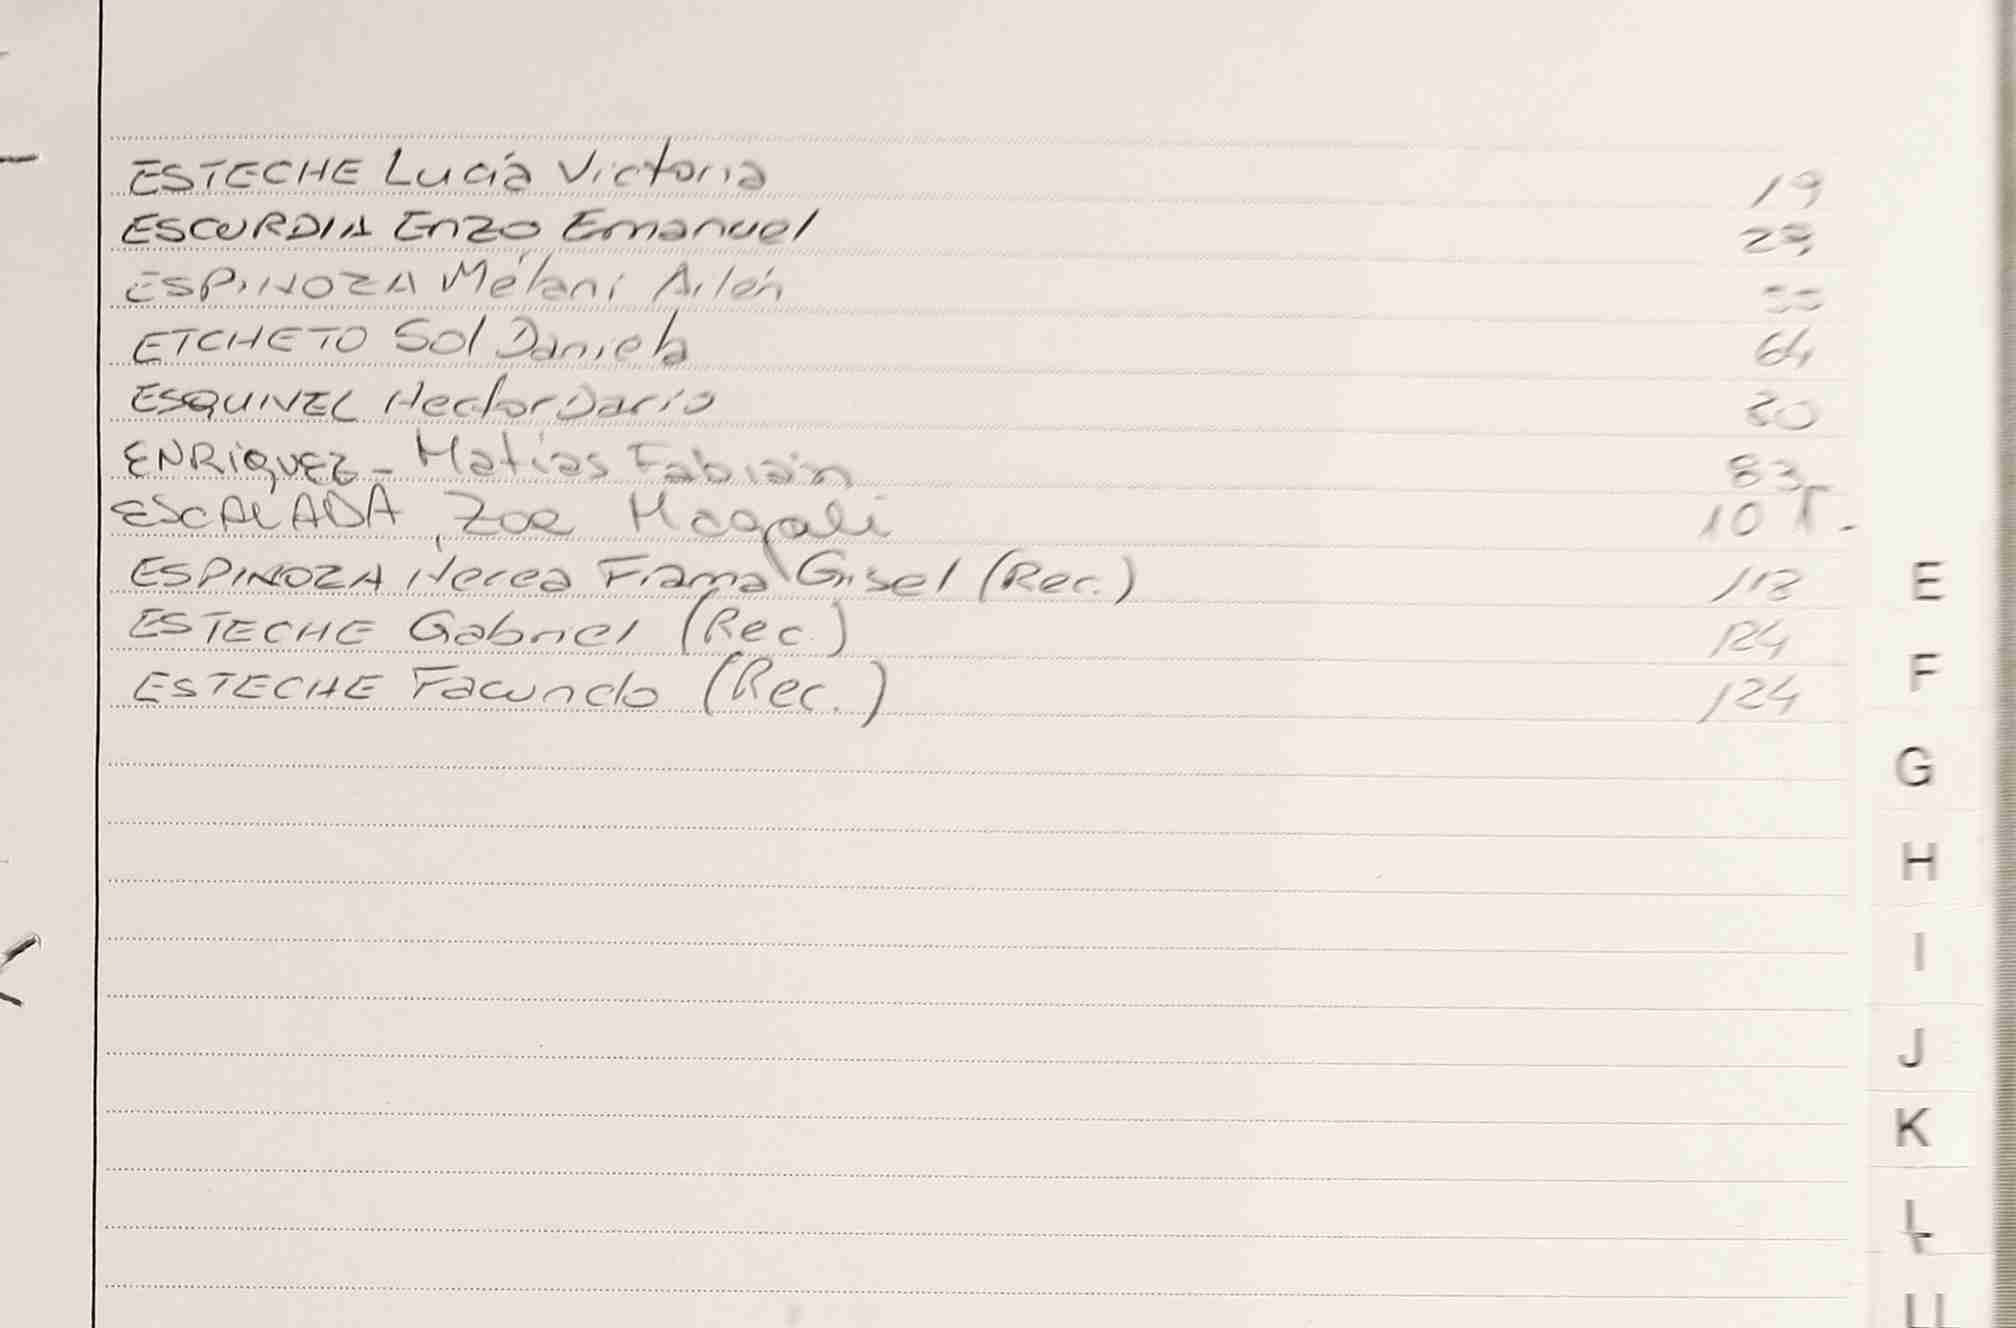 ESTECHE Lucía Victoria 19
ESCURDIA Enzo Emanuel
ESPINOZA Mélani Ailén
ETCHETO Sol Daniela 64
ESQUIVEL Hector Dario
ENRIQUEZ - Matías Fabián 83
ESCALADA, Zoe Magali
ESPINOZA Nerea Fiama Gisel (Rec.)
ESTECHE Gabriel (Rec.) 124
ESTECHE Facundo (Rec.) 124
E
F
G
H
I
J
K
L